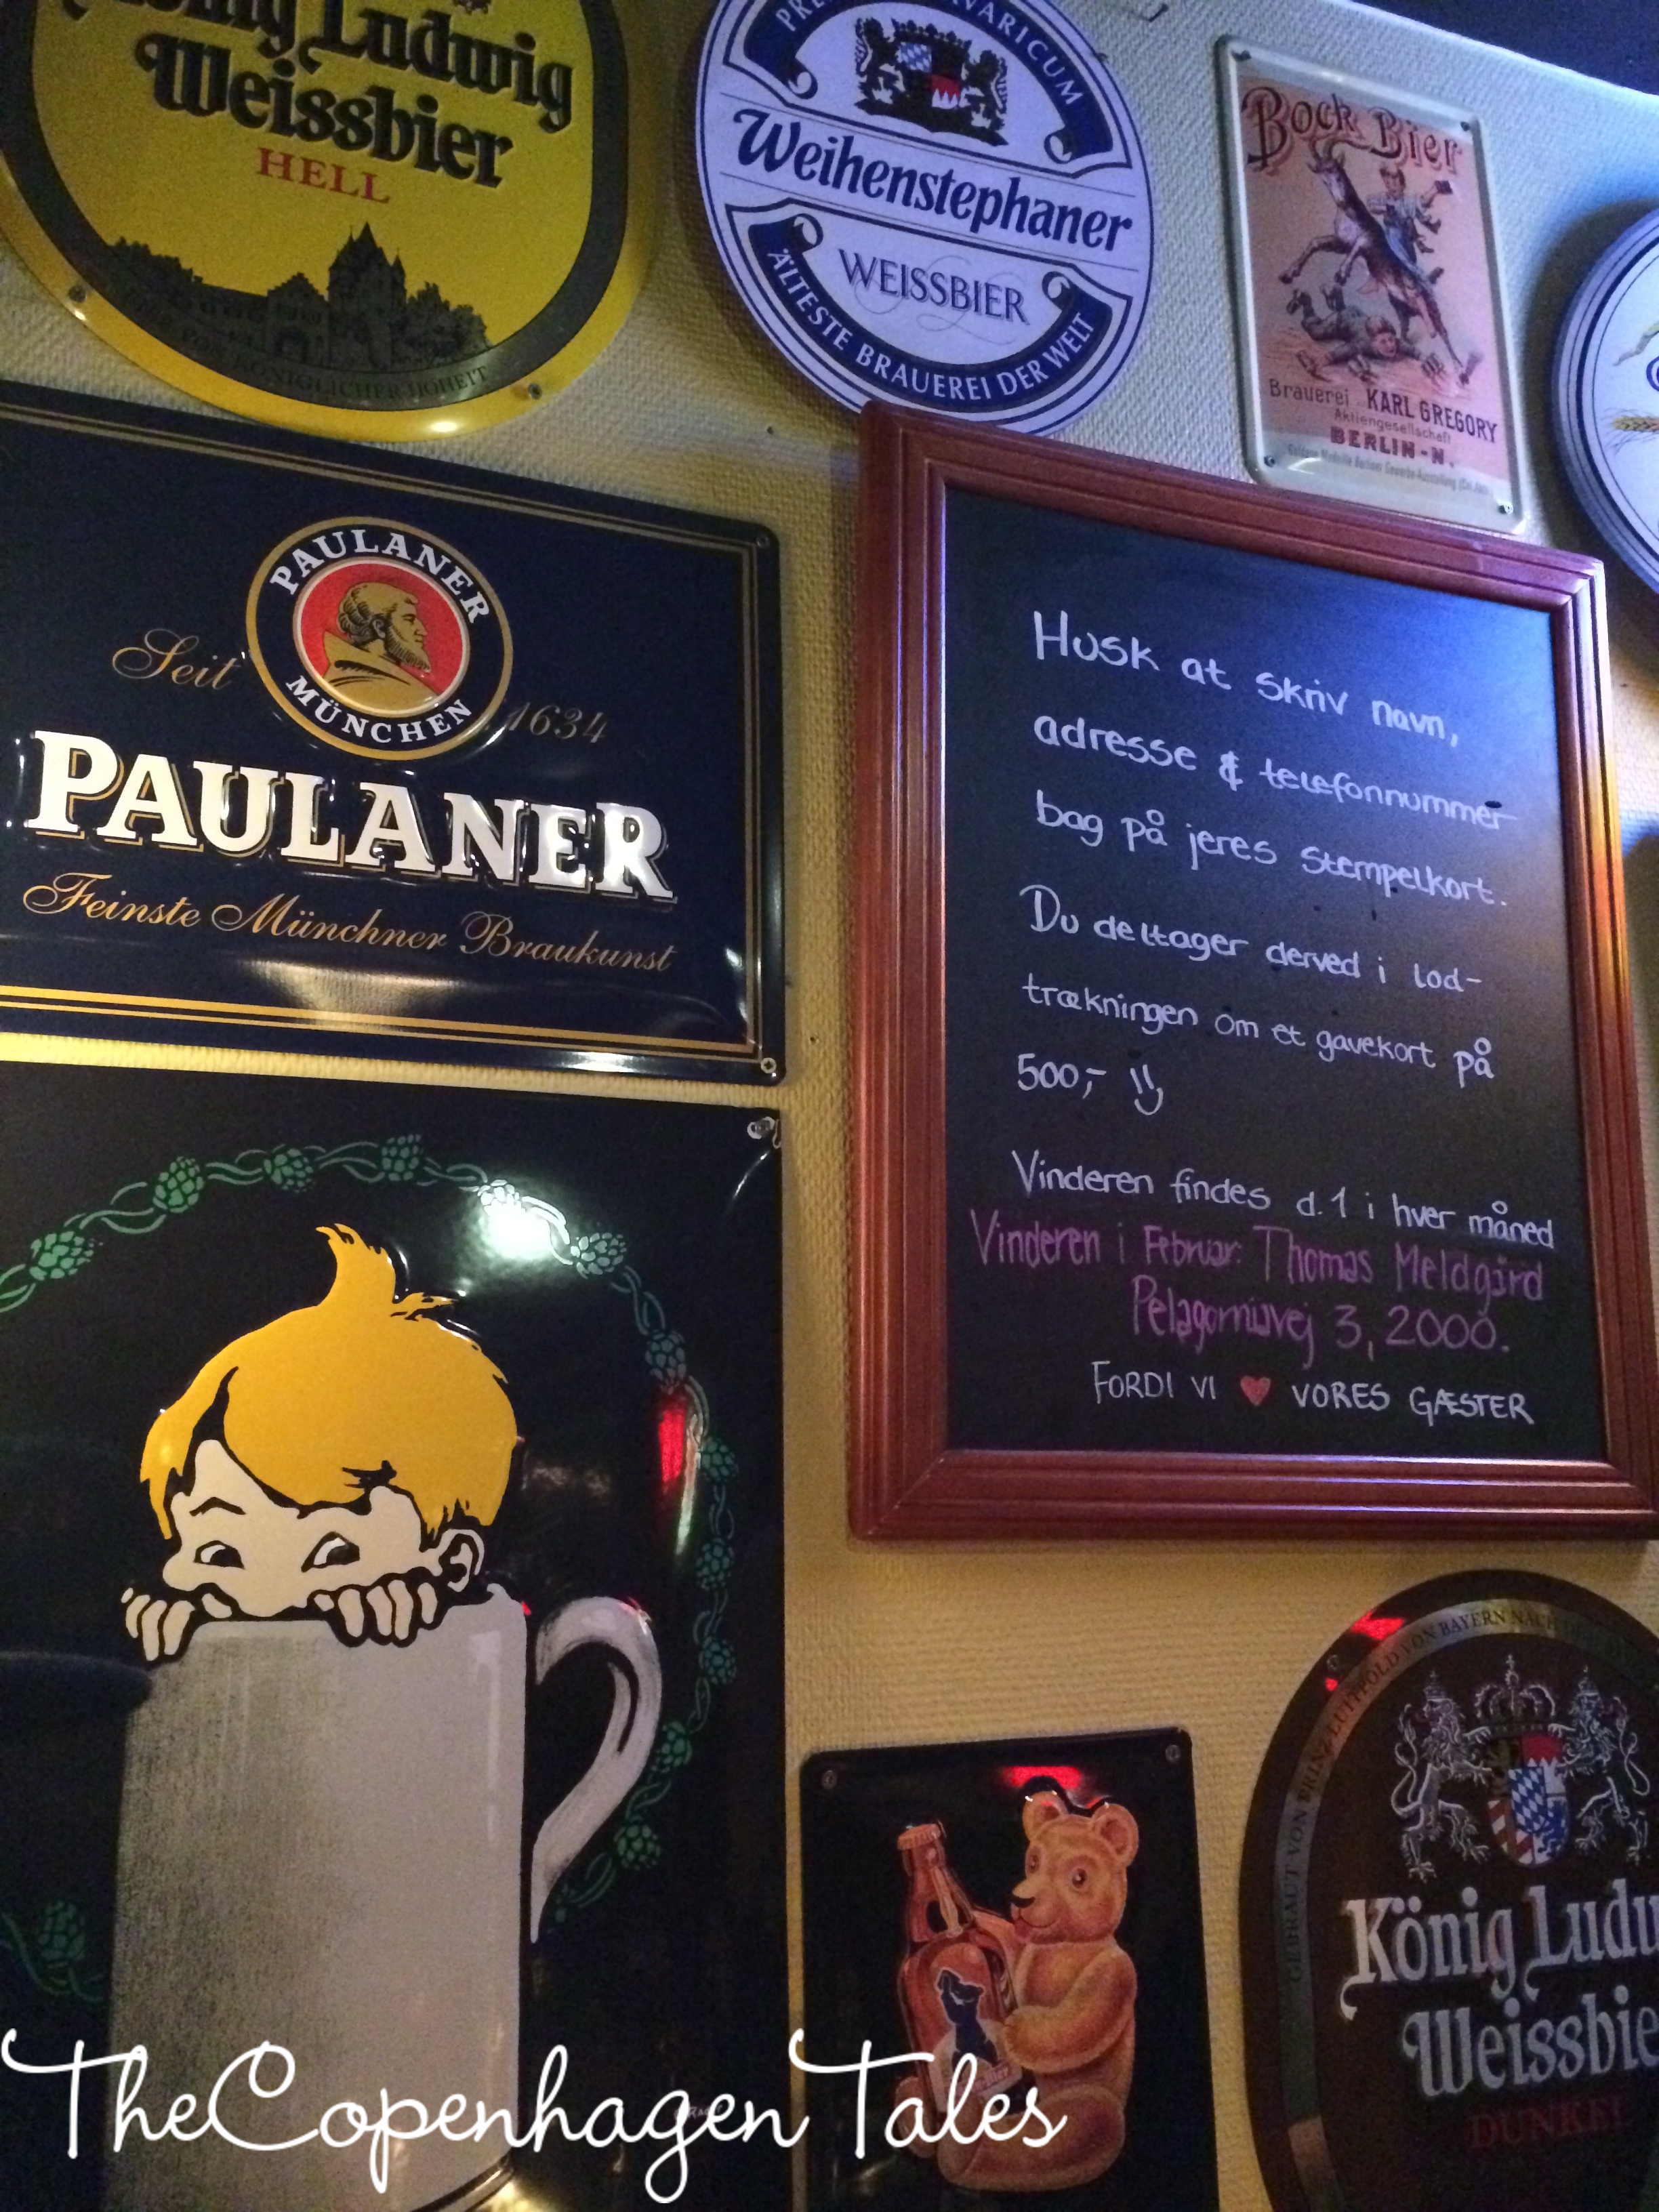 König Ludwig
Weissbier
HELL
KÖNIGLICHER HOHEIT
BAVARICUM
Weihenstephaner
WEISSBIER
ÄLTESTE BRAUEREI DER WELT
BOCK BIER
Brauerei KARL GREGORY
Aktiengesellschaft
BERLIN-N.
PAULANER
MÜNCHEN
Seit 1634
PAULANER
Feinste Münchner Braukunst
Husk at skriv navn,
adresse & telefonnummer
bag på jeres stempelkort.
Du deltager derved i lod-
trækningen om et gavekort på
500,-
Vinderen findes d.1 i hver måned
Vinderen i Februar: Thomas Meldgård
3, 2000.
FORDI VI ♥ VORES GÆSTER
GEBRAUT VON PRINZ LUITPOLD VON BAYERN NACH
König Ludw
Weissbie
DUNKEL
TheCopenhagenTales